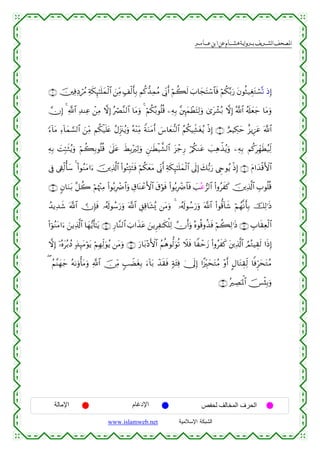 المصحف الشريف برواية هشام عن ابن عامر
إِذْ تَسْتَغِيثُونَ رَبَّكُمْ فَٱسْتَجَابَ لَكُمْ أَنِّى مُمِدُّكُم بِأَلْفٍ مِّنَ ٱلْمَلَـٰٓئِكَةِ مُرْدِفِينَ ۝
وَمَا جَعَلَهُ ٱللَّهُ إِلَّا بُشْرَىٰ وَلِتَطْمَئِنَّ بِهِۦ قُلُوبُكُمْ ۚ وَمَا ٱلنَّصْرُ إِلَّا مِنْ عِندِ ٱللَّهِ ۚ إِنَّ
ٱللَّهَ عَزِيزٌ حَكِيمٌ ۝ إِذْ يُغَشِّيكُمُ ٱلنُّعَاسَ أَمَنَةً مِّنْهُ وَيُنَزِّلُ عَلَيْكُم مِّنَ ٱلسَّمَآءِ مَآءً
لِّيُطَهِّرَكُم بِهِۦ وَيُذْهِبَ عَنكُمْ رِجْزَ ٱلشَّيْطَـٰنِ وَلِيَرْبِطَ عَلَىٰ قُلُوبِكُمْ وَيُثَبِّتَ بِهِ
ٱلْأَقْدَامَ ۝ إِذْ يُوحِى رَبُّكَ إِلَى ٱلْمَلَـٰٓئِكَةِ أَنِّى مَعَكُمْ فَثَبِّتُوا۟ ٱلَّذِينَ ءَامَنُوا۟ ۚ سَأُلْقِى فِى
قُلُوبِ ٱلَّذِينَ كَفَرُوا۟ ٱلرُّعُبَ فَٱضْرِبُوا۟ فَوْقَ ٱلْأَعْنَاقِ وَٱضْرِبُوا۟ مِنْهُمْ كُلَّ بَنَانٍ ۝
ذَٰلِكَ بِأَنَّهُمْ شَآقُّوا۟ ٱللَّهَ وَرَسُولَهُۥ ۚ وَمَن يُشَاقِقِ ٱللَّهَ وَرَسُولَهُۥ فَإِنَّ ٱللَّهَ شَدِيدُ
ٱلْعِقَابِ ۝ ذَٰلِكُمْ فَذُوقُوهُ وَأَنَّ لِلْكَـٰفِرِينَ عَذَابَ ٱلنَّارِ ۝ يَـٰٓأَيُّهَا ٱلَّذِينَ ءَامَنُوٓا۟
إِذَا لَقِيتُمُ ٱلَّذِينَ كَفَرُوا۟ زَحْفًا فَلَا تُوَلُّوهُمُ ٱلْأَدْبَارَ ۝ وَمَن يُوَلِّهِمْ يَوْمَئِذٍ دُبُرَهُۥٓ إِلَّا
مُتَحَرِّفًا لِّقِتَالٍ أَوْ مُتَحَيِّزًا إِلَىٰ فِئَةٍ فَقَدْ بَآءَ بِغَضَبٍ مِّنَ ٱللَّهِ وَمَأْوَىٰهُ جَهَنَّمُ ۖ
وَبِئْسَ ٱلْمَصِيرُ ۝
الحرف المخالف لحفص الإدغام الإمالة
الشبكة الإسلامية www.islamweb.net